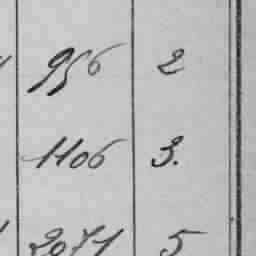 956 2
1106 3.
2071 5